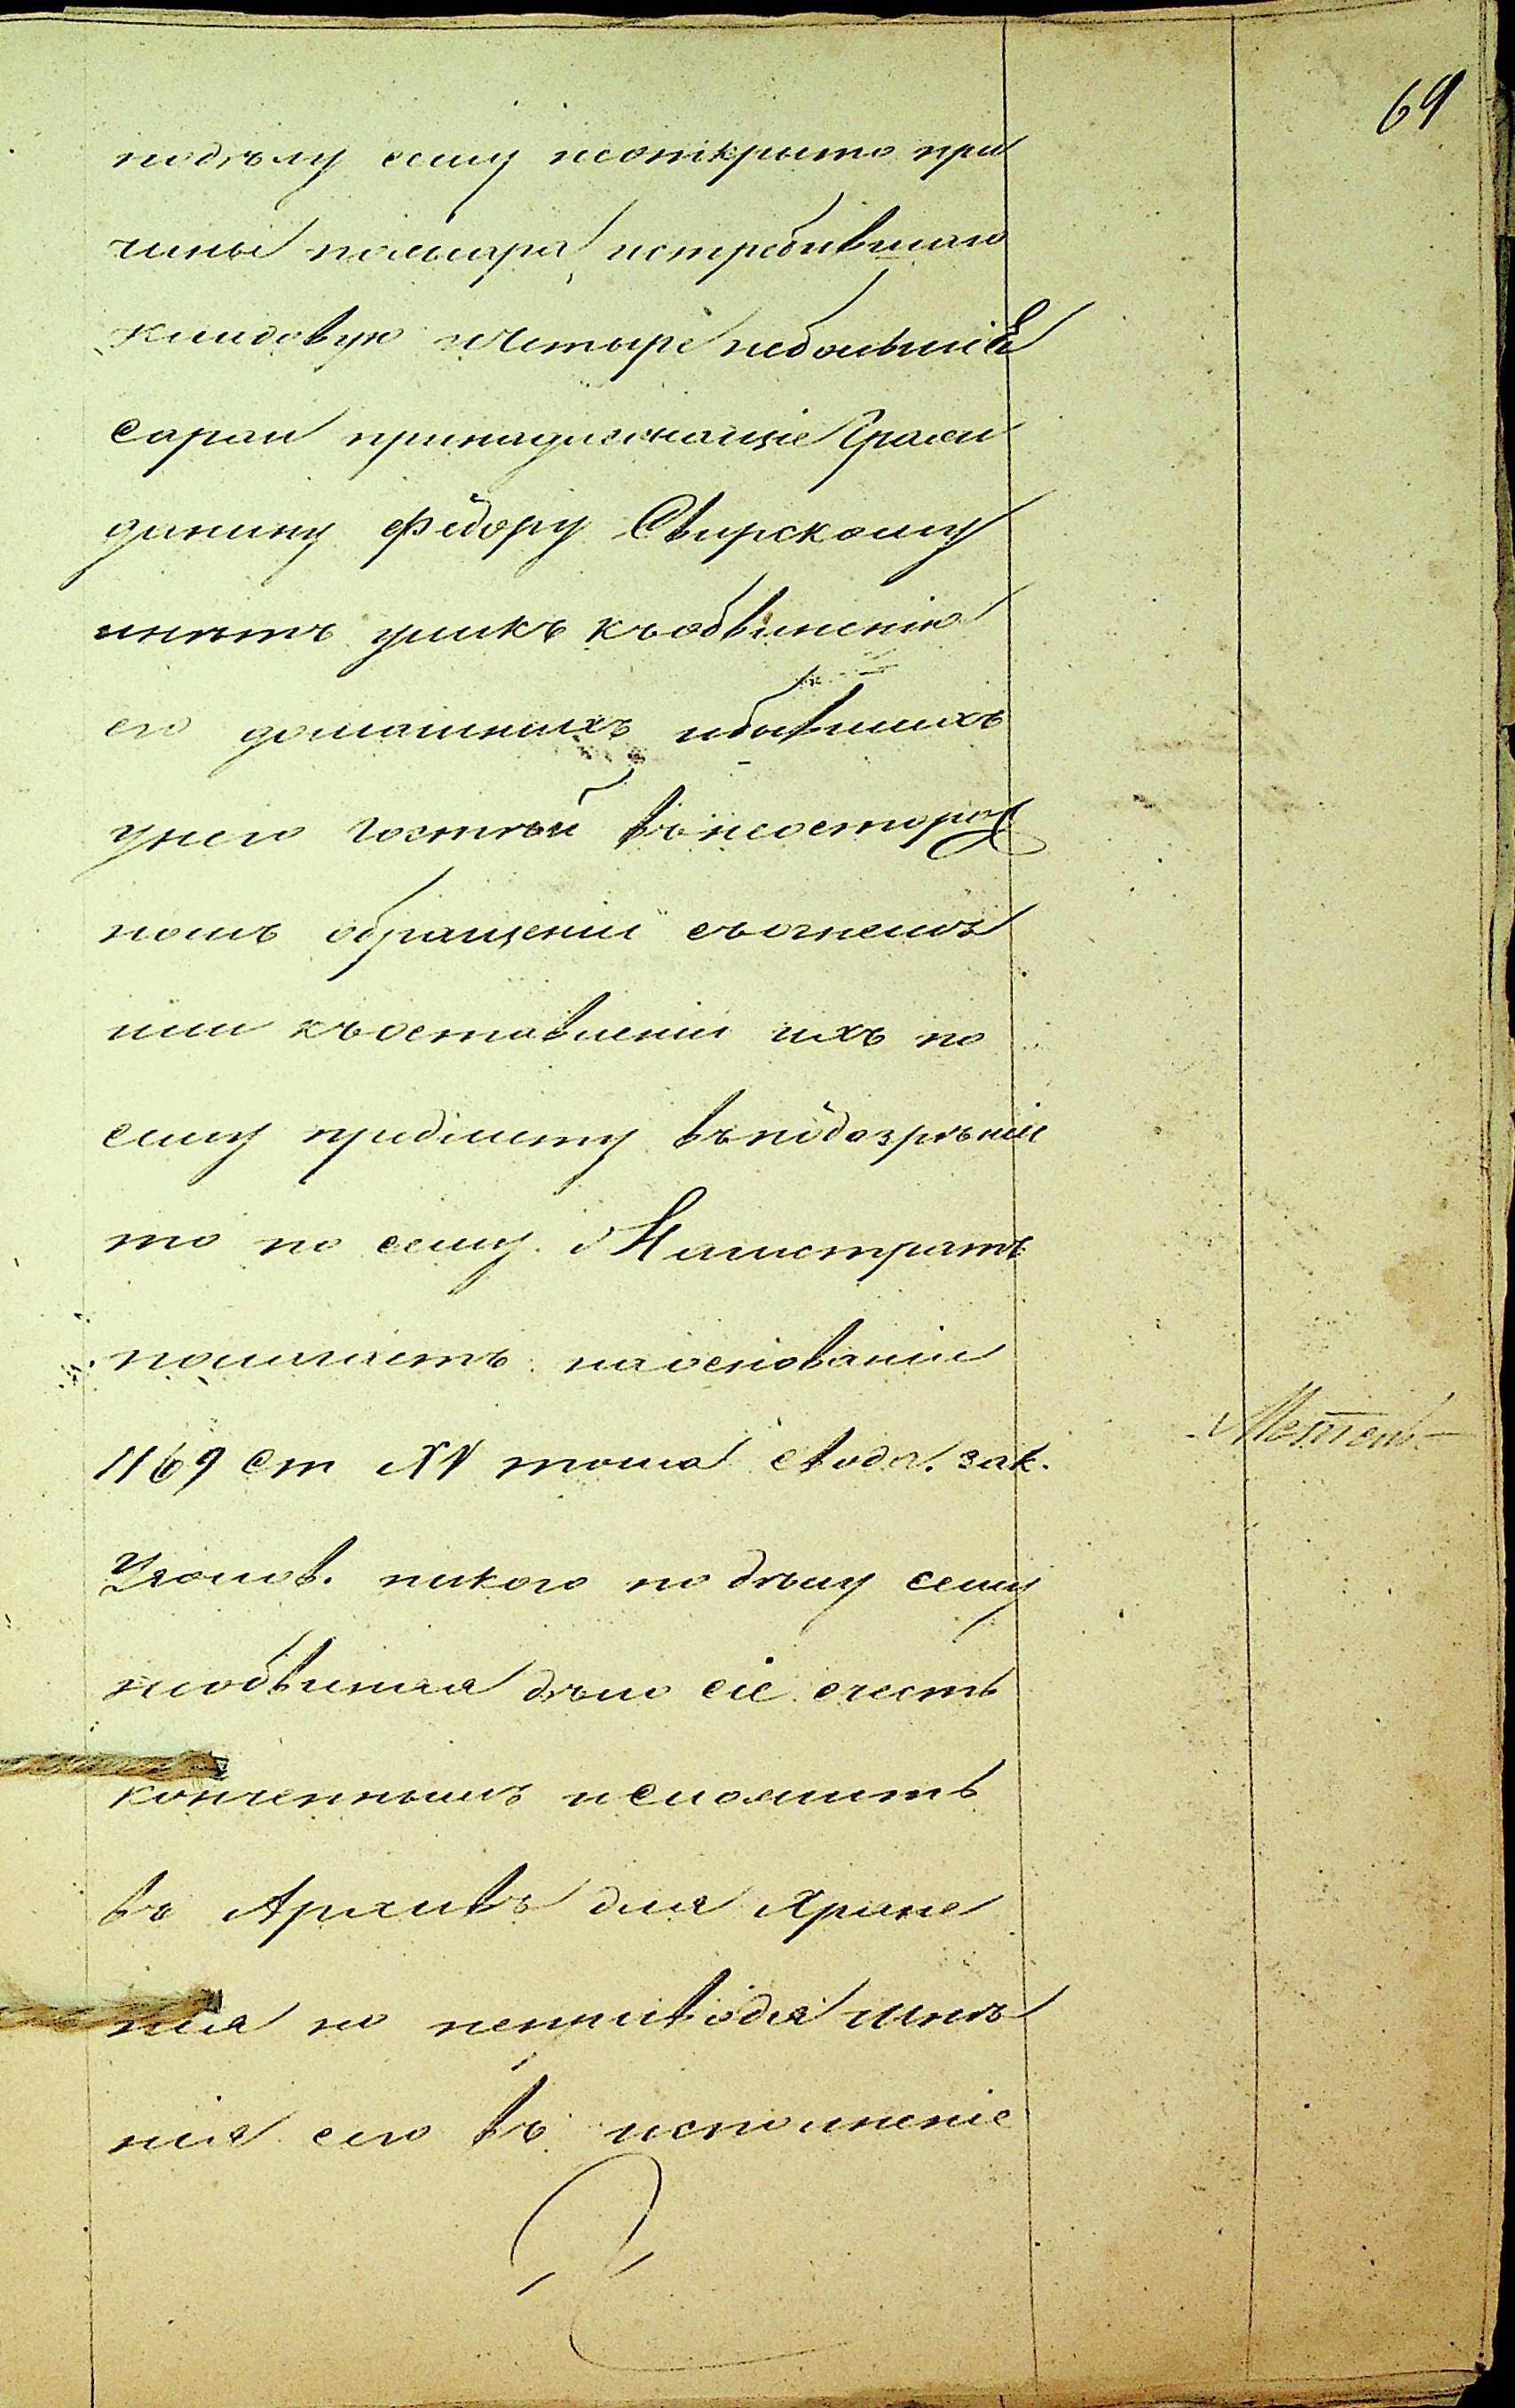 69
подѣлу сему неоткрыто при
чины пожара, истребившаго
кладовую и четыре небольшіе
сараи принадлежащіе Граж
данину Фёдору Свирскому
инѣтъ уликъ къобвиненію
его домашнихъ ибывшихъ
унего гостѣй внеосторож
номъ обращеніи съогнемъ
или къоставленію ихъ по
сему предмету въ подозрѣніи
то по сему Магистратъ
полагаетъ на основаніи
1169 ст XV тома свода. зак.
Уголов. никого по дѣлу сему
необвиняя дѣло сіе счесть
конченнымъ исложить
въ Архивъ для хране
нія но неприводя мнѣ
нія сего въ исполненіе